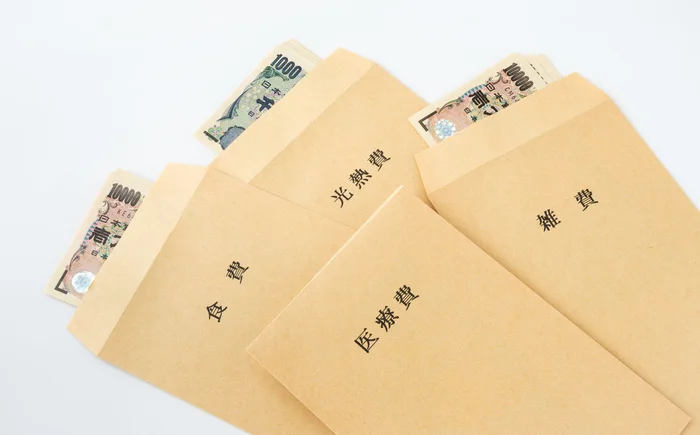 1000
日本
10000
光熱費
雑費
10000
日本
食費
医療費